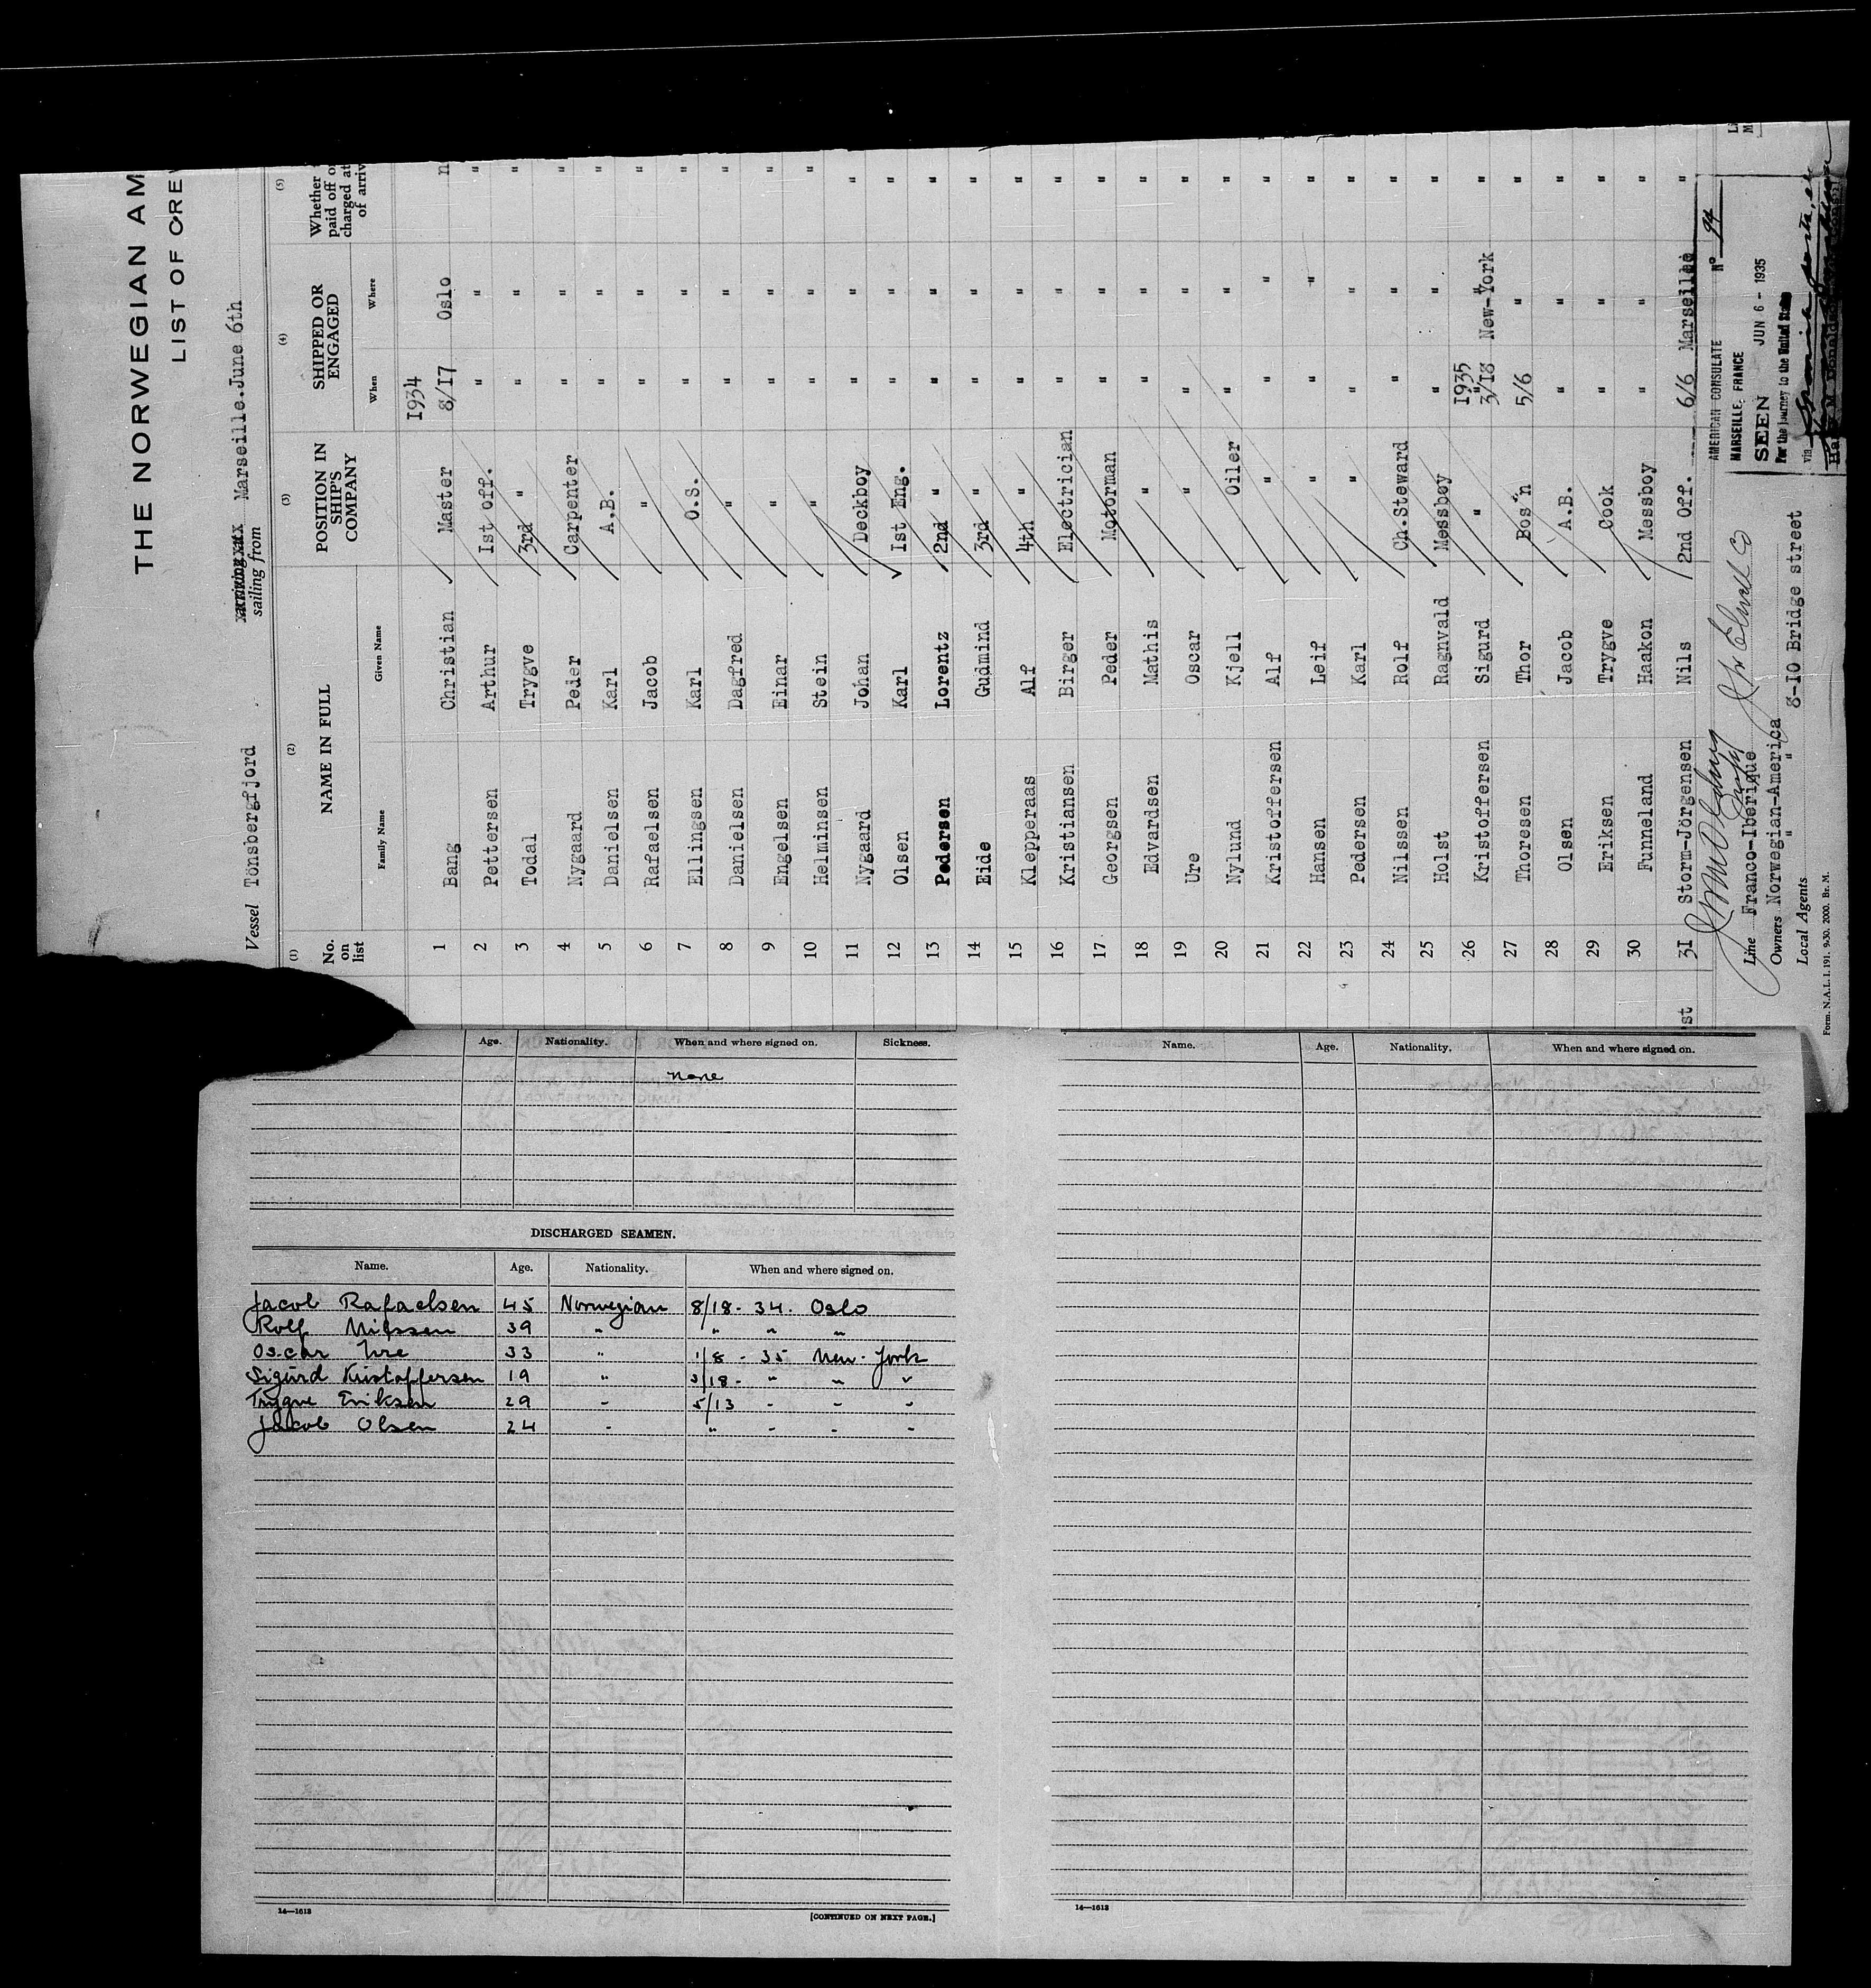 THE NORWEGIAN AM
LIST OF CREW
Vessel Tönsbergfjord sailing from Marseille.June 6th
(1) (2) (3) (4) (5)
No. on list NAME IN FULL POSITION IN SHIP'S COMPANY SHIPPED OR ENGAGED Whether paid off o charged at of arriv
Family Name Given Name When Where
1934
1 Bang Christian Master 8/17 Oslo n
2 Pettersen Arthur 1st off. " " "
3 Todal Trygve 3rd " " " "
4 Nygaard Peder Carpenter " " "
5 Danielsen Karl A.B. " " "
6 Rafaelsen Jacob " " " "
7 Ellingsen Karl O.S. " " "
8 Danielsen Dagfred " " " "
9 Engelsen Einar " " " "
10 Helminsen Stein " " " "
11 Nygaard Johan Deckboy " " "
12 Olsen Karl Ist Eng. " " "
13 Pedersen Lorentz 2nd " " " "
14 Eide Gudmind 3rd " " " "
15 Klepperaas Alf 4th " " " "
16 Kristiansen Birger Electrician " " "
17 Georgsen Peder Motorman " " "
18 Edvardsen Mathis " " " "
19 Ure Oscar " " " "
20 Nylund Kjell Oiler " " "
21 Kristoffersen Alf " " " "
22 Hansen Leif " " " "
23 Pedersen Karl " " " "
24 Nilssen Rolf Ch.Steward " " "
25 Holst Ragnvald Messboy " " "
1935
26 Kristoffersen Sigurd " 3/18 New-York "
27 Thoresen Thor Bos'n 5/6 " "
28 Olsen Jacob A.B. " " "
29 Eriksen Trygve Cook " " "
30 Funneland Haakon Messboy " " "
31 Storm-Jörgensen Nils 2nd Off. 6/6 Marseille "
st
Line Franco-Iberique
Owners Norwegian-America
Local Agents " " 8-10 Bridge street
Form. N.A.L.I. 191. 9-30. 2000. Br. M.
AMERICAN CONSULATE No 94
MARSEILLE, FRANCE
SEEN JUN 6 - 1935
For the journey to the United States
via
Li
M
Age. Nationality. When and where signed on. Sickness.
none
DISCHARGED SEAMEN.
Name. Age. Nationality. When and where signed on.
Jacob Rafaelsen 45 Norwegian 8/18 - 34. Oslo
Rolf Nilssen 39 " " " "
Oscar Ure 33 " 1/8 - 35 New-York
Sigurd Kristoffersen 19 " 3/18 - " " "
Trygve Eriksen 29 - 5/13 - - -
Jacob Olsen 24 - " - - -
14—1613
[CONTINUED ON NEXT PAGE.]
Name. Age. Nationality. When and where signed on.
14—1613